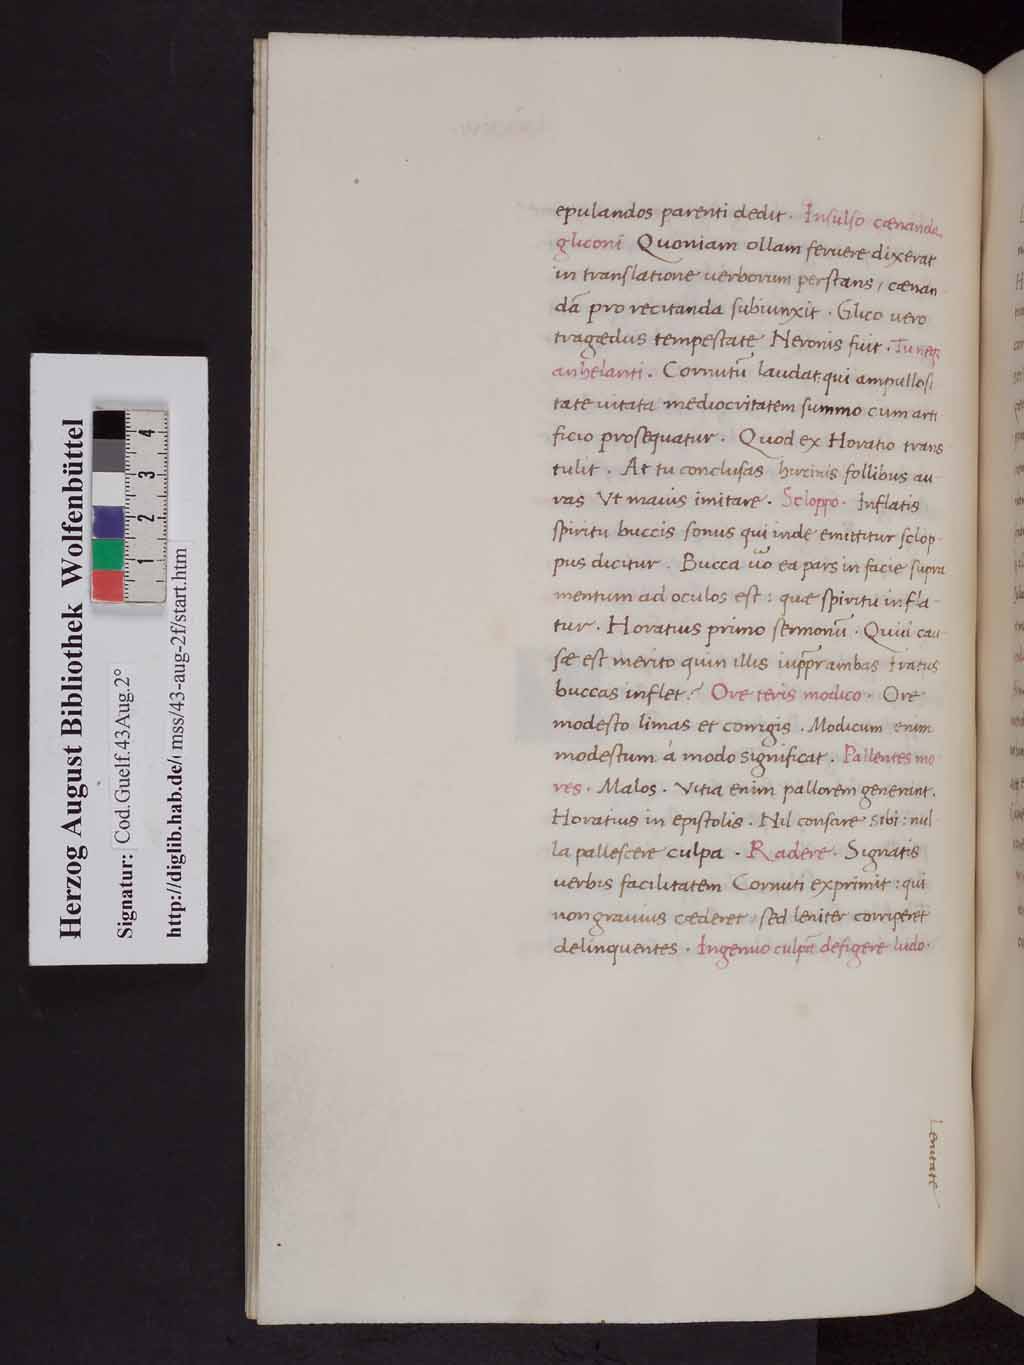 epulandos parenti dedit . Insulso cænanda
gliconi Quoniam ollam feruere dixerat
in translatione uerborum perstans , cænan
dā pro recitanda subiunxit . Glico uero
tragædus tempestate Neronis fuit . Tu neq;
anhelanti . Cornutū laudat qui ampullosi
tate uitata mediocritatem summo cum arti
ficio prosequatur . Quod ex Horatio trans
tulit . At tu conclusas hircinis follibus au-
ras Vt mauis imitare . Scloppo . Inflatis
spiritu buccis sonus qui inde emittitur sclop-
pus dicitur . Bucca uo ea pars in facie supra
mentum ad oculos est : quæ spiritu infla-
tur . Horatius primo sermonū . Quid cau-
sæ est merito quin illis iuppr ambas Iratus
buccas inflet ? Ore teris modico . Ore
modesto limas et corrigis . Modicum enim
modestum à modo significat . Pallentes mo
res . Malos . Vitia enim pallorem generant .
Horatius in epistolis . Nil conscire sibi : nul-
la pallescere culpa . Radere . Signatis
uerbis facilitatem Cornuti exprimit : qui
non grauius cæderet sed leniter corriperet
delinquentes . Ingenuo culpā defigere ludo .
Lenitate
Herzog August Bibliothek Wolfenbüttel
Signatur: Cod.Guelf.43Aug.2°
http://diglib.hab.de/ mss/43-aug-2f/start.htm
1 2 3 4